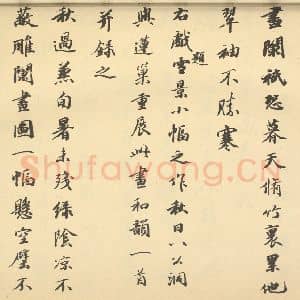 畫闌祇恐暮天脩竹裏累他
翠袖不勝寒
右戲題雪景小幅之作秋日八公洞
與蓮巢重展此畫和韻一首
并錄之
秋過兼旬暑未殘綠陰凉不
蔽雕闌畫圖一幅懸空壁不
Shufawang.CN